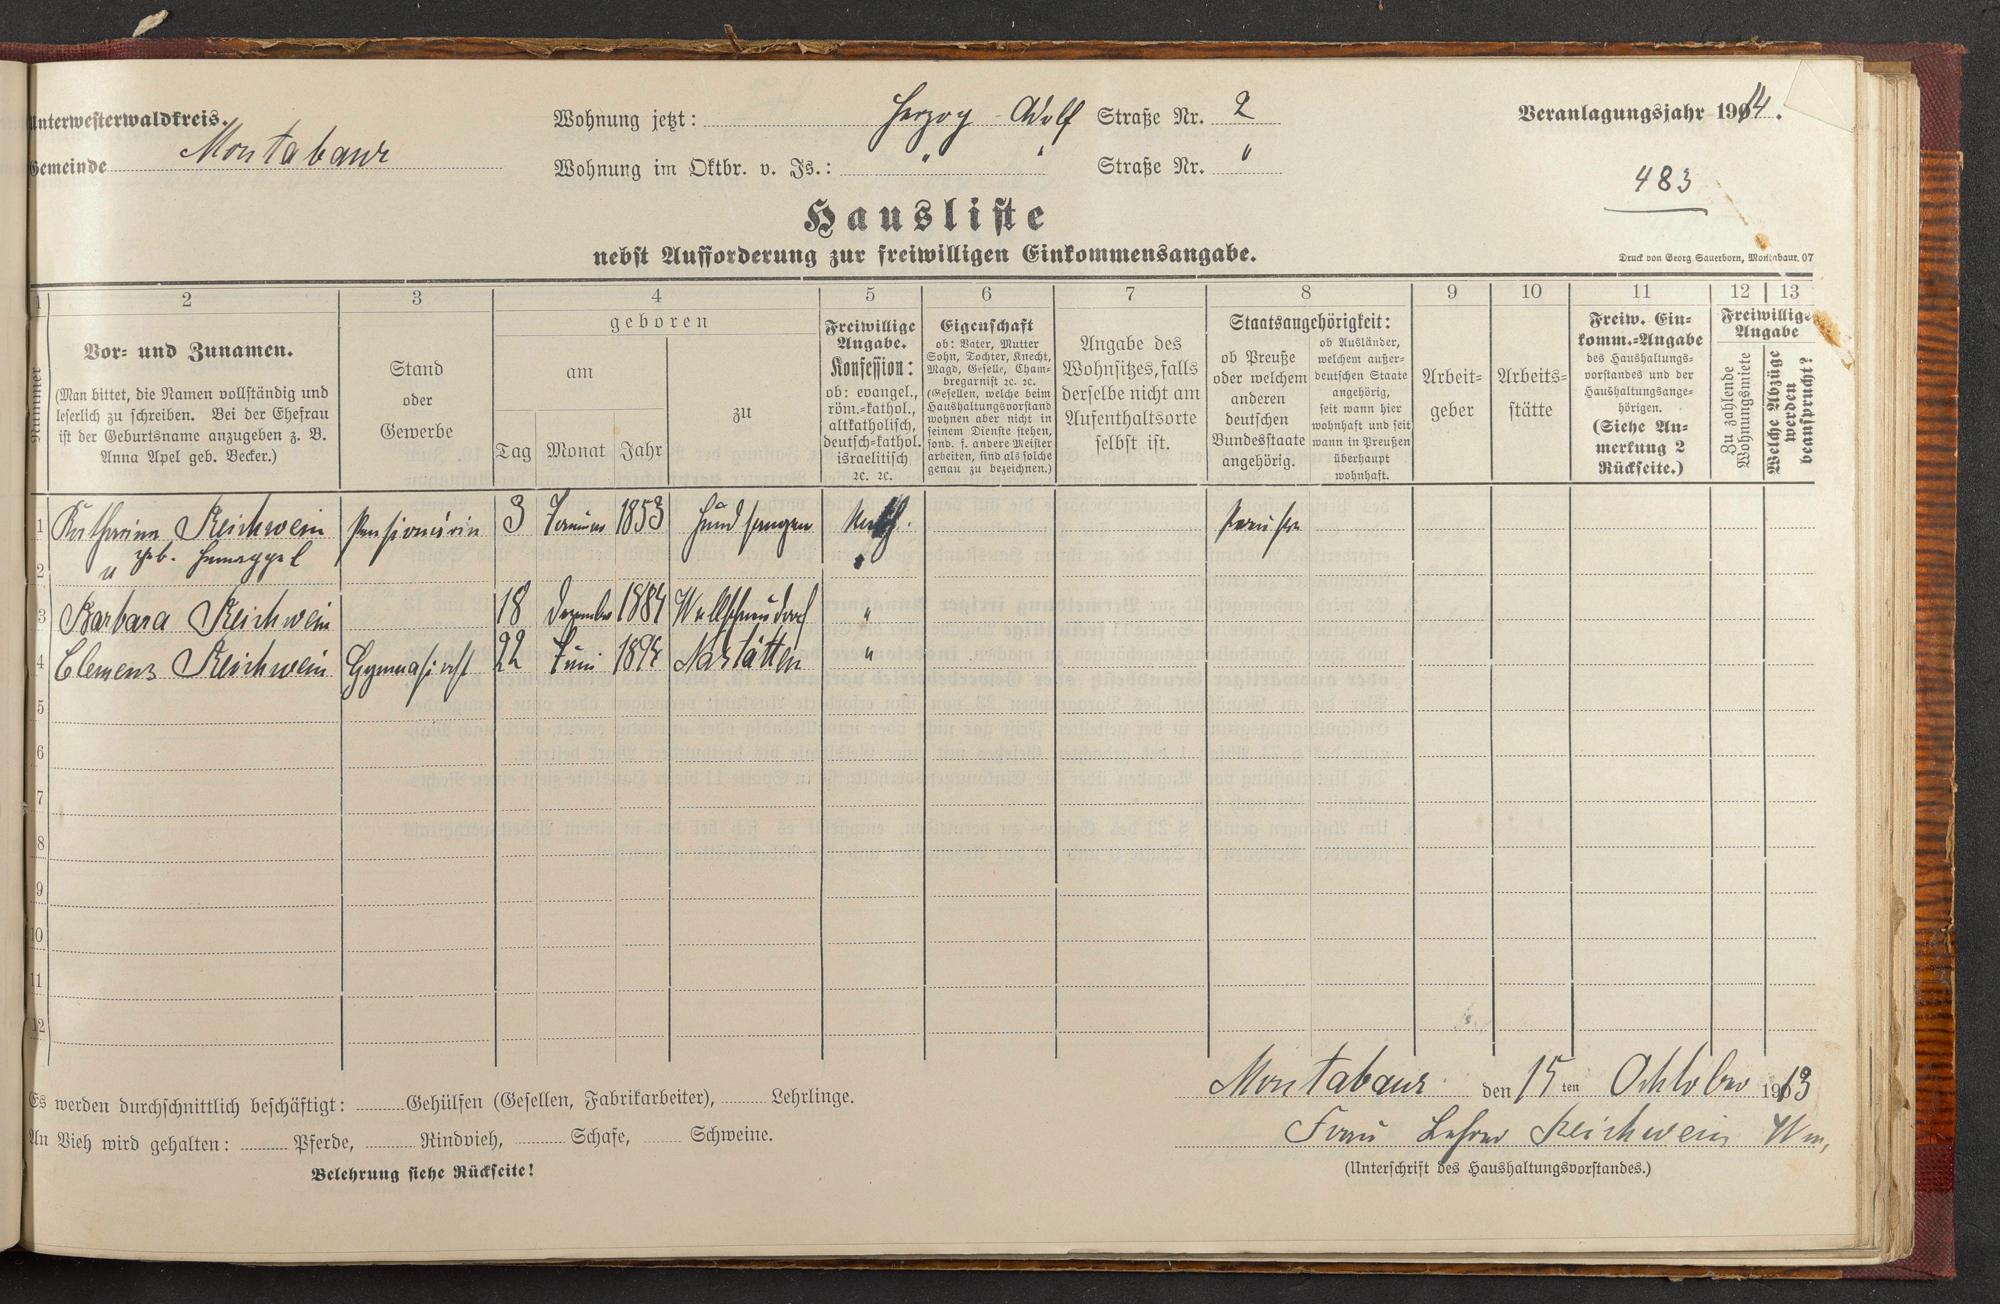 Unterwesterwaldkreis.
Gemeinde Montabaur
Wohnung jetzt: Herzog Adolf Straße Nr. 2
Wohnung im Oktbr. v. Js.: " " Straße Nr. "
Veranlagungsjahr 1914.
483
Hausliste
nebst Aufforderung zur freiwilligen Einkommensangabe.
Druck von Georg Sauerborn, Montabaur. 07
1 2 3 4 5 6 7 8 9 10 11 12 13
Nummer
Vor- und Zunamen.
(Man bittet, die Namen vollständig und
leserlich zu schreiben. Bei der Ehefrau
ist der Geburtsname anzugeben z. B.
Anna Apel geb. Becker.)
Stand
oder
Gewerbe
geboren
am
Tag Monat Jahr
zu
Freiwillige
Angabe.
Konfession:
ob: evangel.,
röm.-kathol.,
altkatholisch,
deutsch-kathol.
israelitisch
ꝛc. ꝛc.
Eigenschaft
ob: Vater, Mutter
Sohn, Tochter, Knecht,
Magd, Geselle, Cham-
bregarnist ꝛc. ꝛc.
(Gesellen, welche beim
Haushaltungsvorstand
wohnen aber nicht in
seinem Dienste stehen,
sond. f. andere Meister
arbeiten, sind als solche
genau zu bezeichnen.)
Angabe des
Wohnsitzes, falls
derselbe nicht am
Aufenthaltsorte
selbst ist.
Staatsangehörigkeit:
ob Preuße
oder welchem
anderen
deutschen
Bundesstaate
angehörig.
ob Ausländer,
welchem außer-
deutschen Staate
angehörig,
seit wann hier
wohnhaft und seit
wann in Preußen
überhaupt
wohnhaft.
Arbeit-
geber
Arbeits-
stätte
Freiw. Ein-
komm.-Angabe
des Haushaltungs-
vorstandes und der
Haushaltungsange-
hörigen.
(Siehe An-
merkung 2
Rückseite.)
Freiwillige
Angabe
Zu zahlende
Wohnungsmiete
Welche Abzüge
werden
beansprucht?
1 Katharina Reichwein Pensionärin 3 Januar 1853 Hundsangen kath. Preuße
geb.
2
3 Barbara Reichwein 18 Dezember 1884 "
4 Clemens Reichwein Gymnasiast 22 Juni 1894 Nastätten "
5
6
7
8
9
10
11
12
Montabaur den 15ten Oktober 1913
Frau Lehrer Reichwein Ww.
(Unterschrift des Haushaltungsvorstandes.)
Es werden durchschnittlich beschäftigt: Gehülfen (Gesellen, Fabrikarbeiter), Lehrlinge.
An Vieh wird gehalten: Pferde, Rindvieh, Schafe, Schweine.
Belehrung siehe Rückseite!